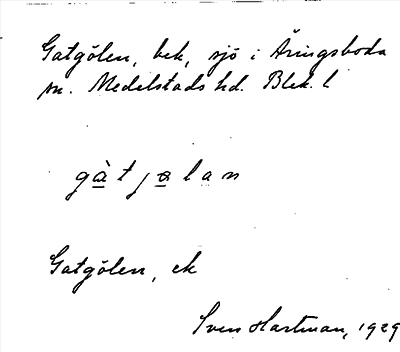 Gatgölen, bek, sjö i Äringsboda
sn. Medelstads hd. Blek. l
gàtjølan
Gatgölen, ek
Sven Hartman, 1929